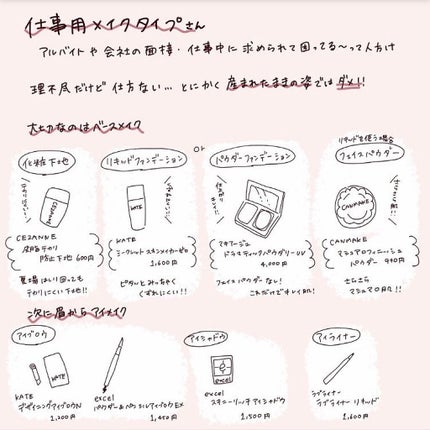 仕事用メイクタイプさん
アルバイトや会社の面接・仕事中に求められて困ってる〜って人向け
理不尽だけど仕方ない…とにかく産まれたままの姿ではダメ!!
大切なのはベースメイク
化粧下地
リキッドファンデーション
or
パウダーファンデーション
リキッドを使う場合
フェイスパウダー
CEZANNE
KATE
CANMAKE
CEZANNE
皮脂テカリ
防止下地 600円
夏場はしり回っても
テカりにくい下地!!
KATE
シークレットスキンメイカーゼロ
1,600円
ピタッとみっちゃく
くずれにくい!!
マキアージュ
ドラマティックパウダリーUV
4,000円
フェイスパウダーなし!
これだけですべすべ肌!
CANMAKE
マシュマロフィニッシュ
パウダー 940円
さらさら
マシュマロ肌!!
次に眉からアイメイク
アイブロウ
アイシャドウ
アイライナー
KATE
excel
KATE
デザイニングアイブロウN
1,200円
excel
パウダー&ペンシルアイブロウEX
1,450円
excel
スキニーリッチアイシャドウ
1,500円
ラブライナー
ラブライナー リキッド
1,600円